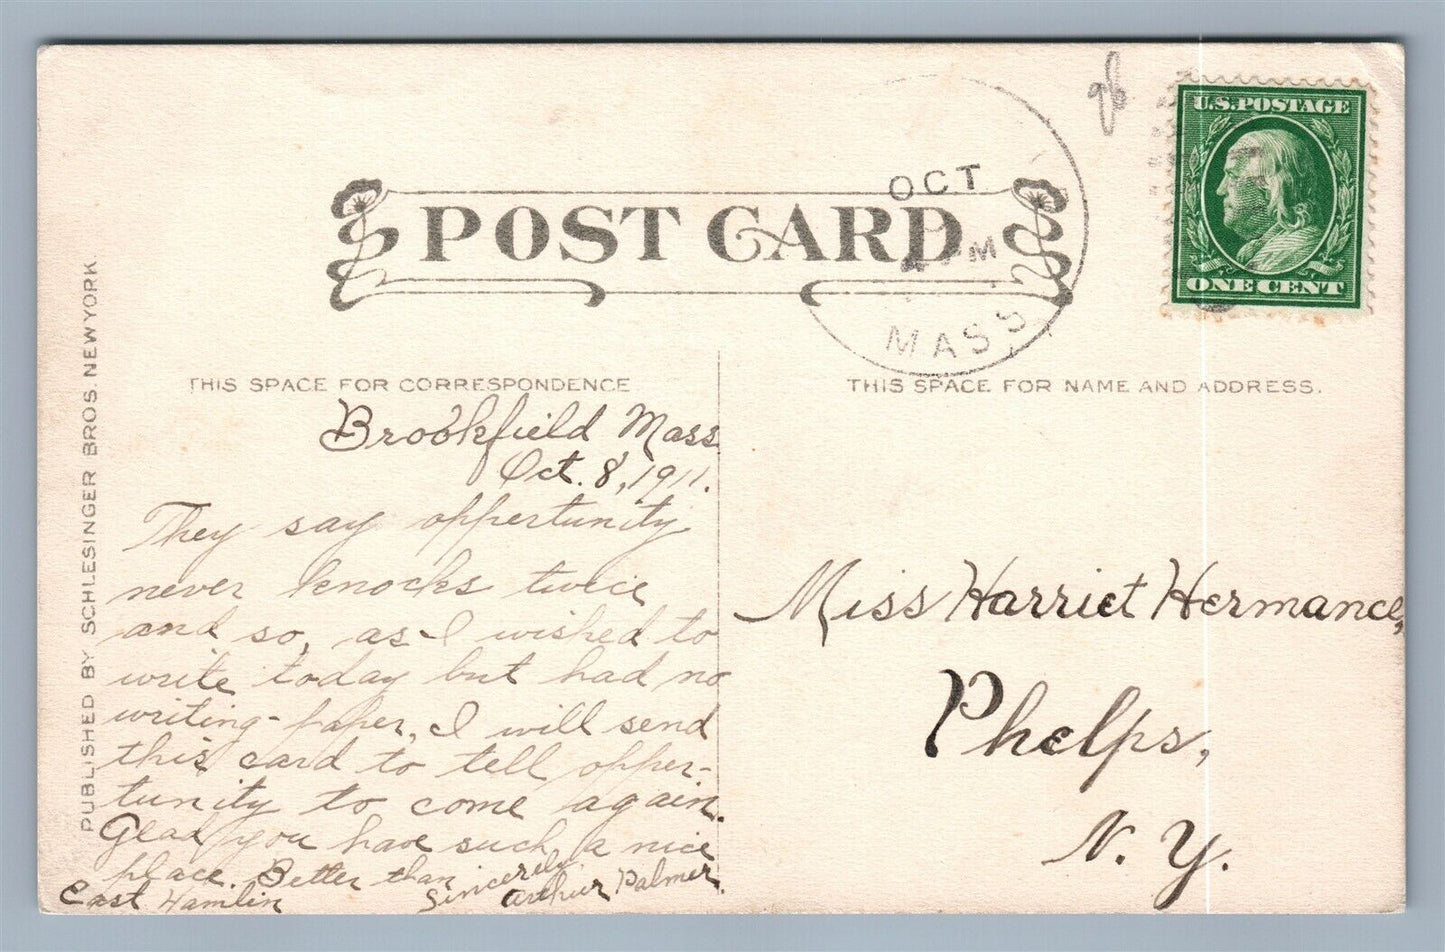 U.S. POSTAGE
ONE CENT
OCT
PM
MASS
POST CARD
PUBLISHED BY SCHLESINGER BROS. NEW YORK.
THIS SPACE FOR CORRESPONDENCE
Brookfield Mass.
Oct. 8, 1911.
They say oppertunity
never knocks twice
and so, as I wished to
write today but had no
writing-paper, I will send
this card to tell opper-
tunity to come again.
Glad you have such a nice
place. Better than
East Hamlin
Sincerely.
Arthur Palmer.
THIS SPACE FOR NAME AND ADDRESS.
Miss Harriet Hermance,
Phelps,
N. Y.